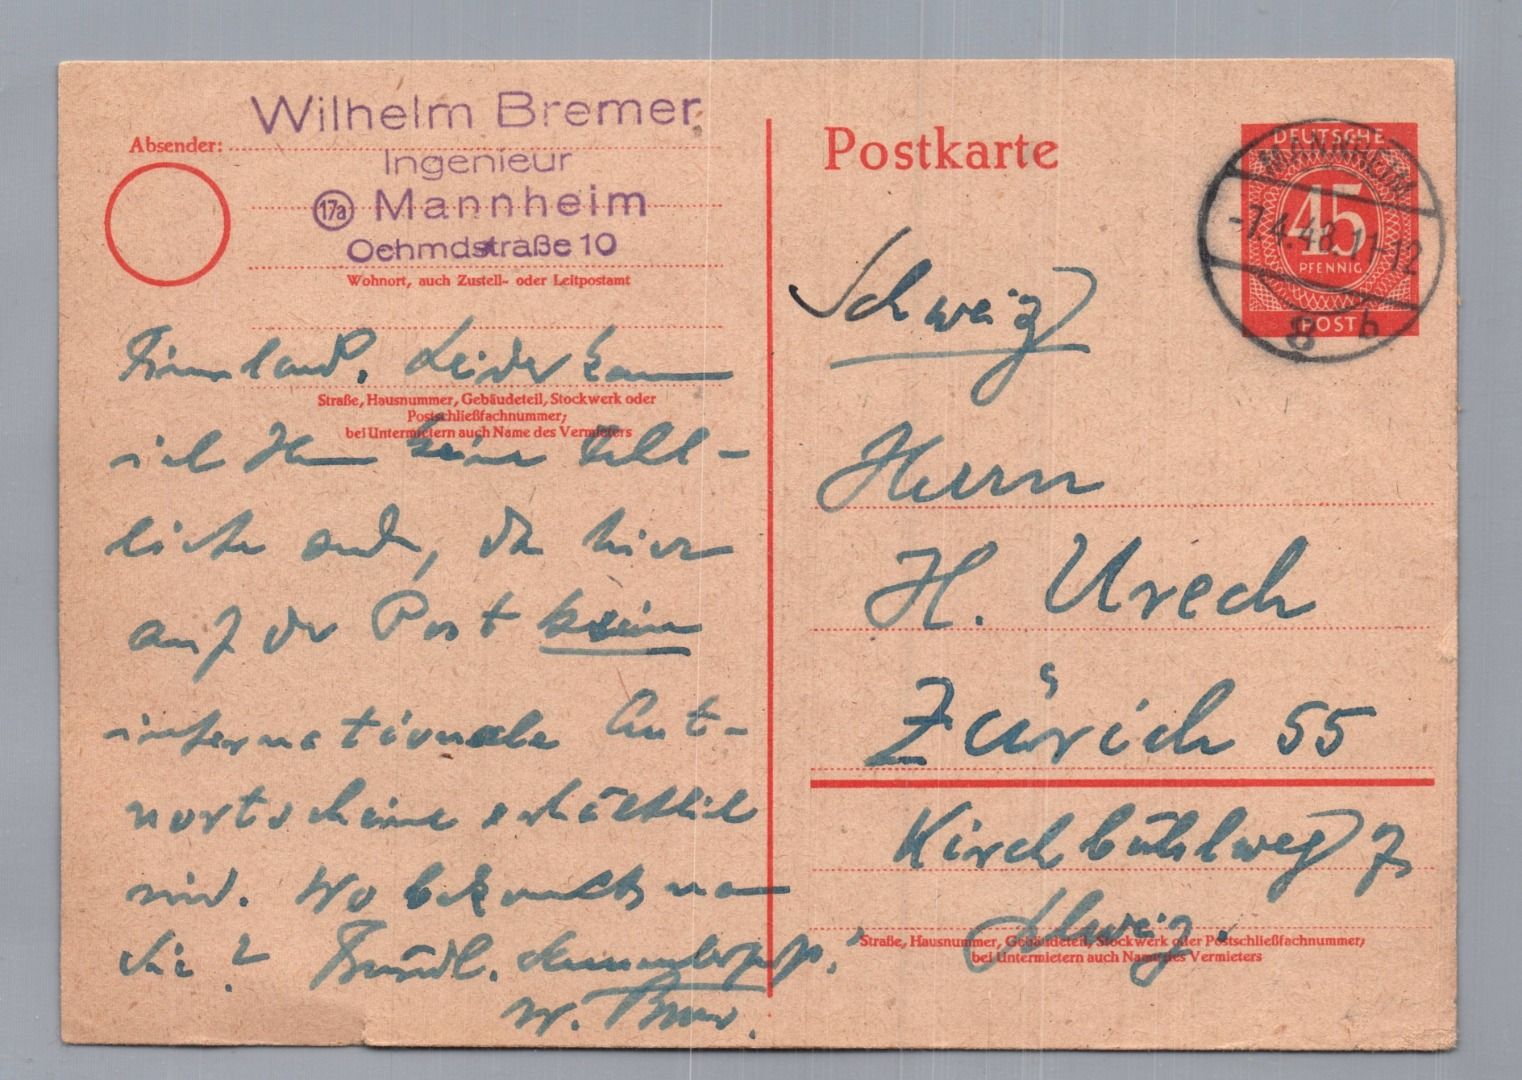 Wilhelm Bremer
Absender:
Ingenieur
17a Mannheim
Oehmdstraße 10
Wohnort, auch Zustell- oder Leitpostamt
Finnland. Leider kann
Straße, Hausnummer, Gebäudeteil, Stockwerk oder
Postschließfachnummer;
bei Untermietern auch Name des Vermieters
ich keine
da hier
auf der Post keine
internationale Ant-
wortscheine erhältlich
sind. Wo bekommt man
die? Freundl.
W. Bremer.
Postkarte
DEUTSCHE
45
PFENNIG
POST
MANNHEIM
-7.4.48.11-12
8 b
Schweiz
Herrn
H. Urech
Zürich 55
Kirchbühlweg 7
Schweiz.
Straße, Hausnummer, Gebäudeteil, Stockwerk oder Postschließfachnummer;
bei Untermietern auch Name des Vermieters